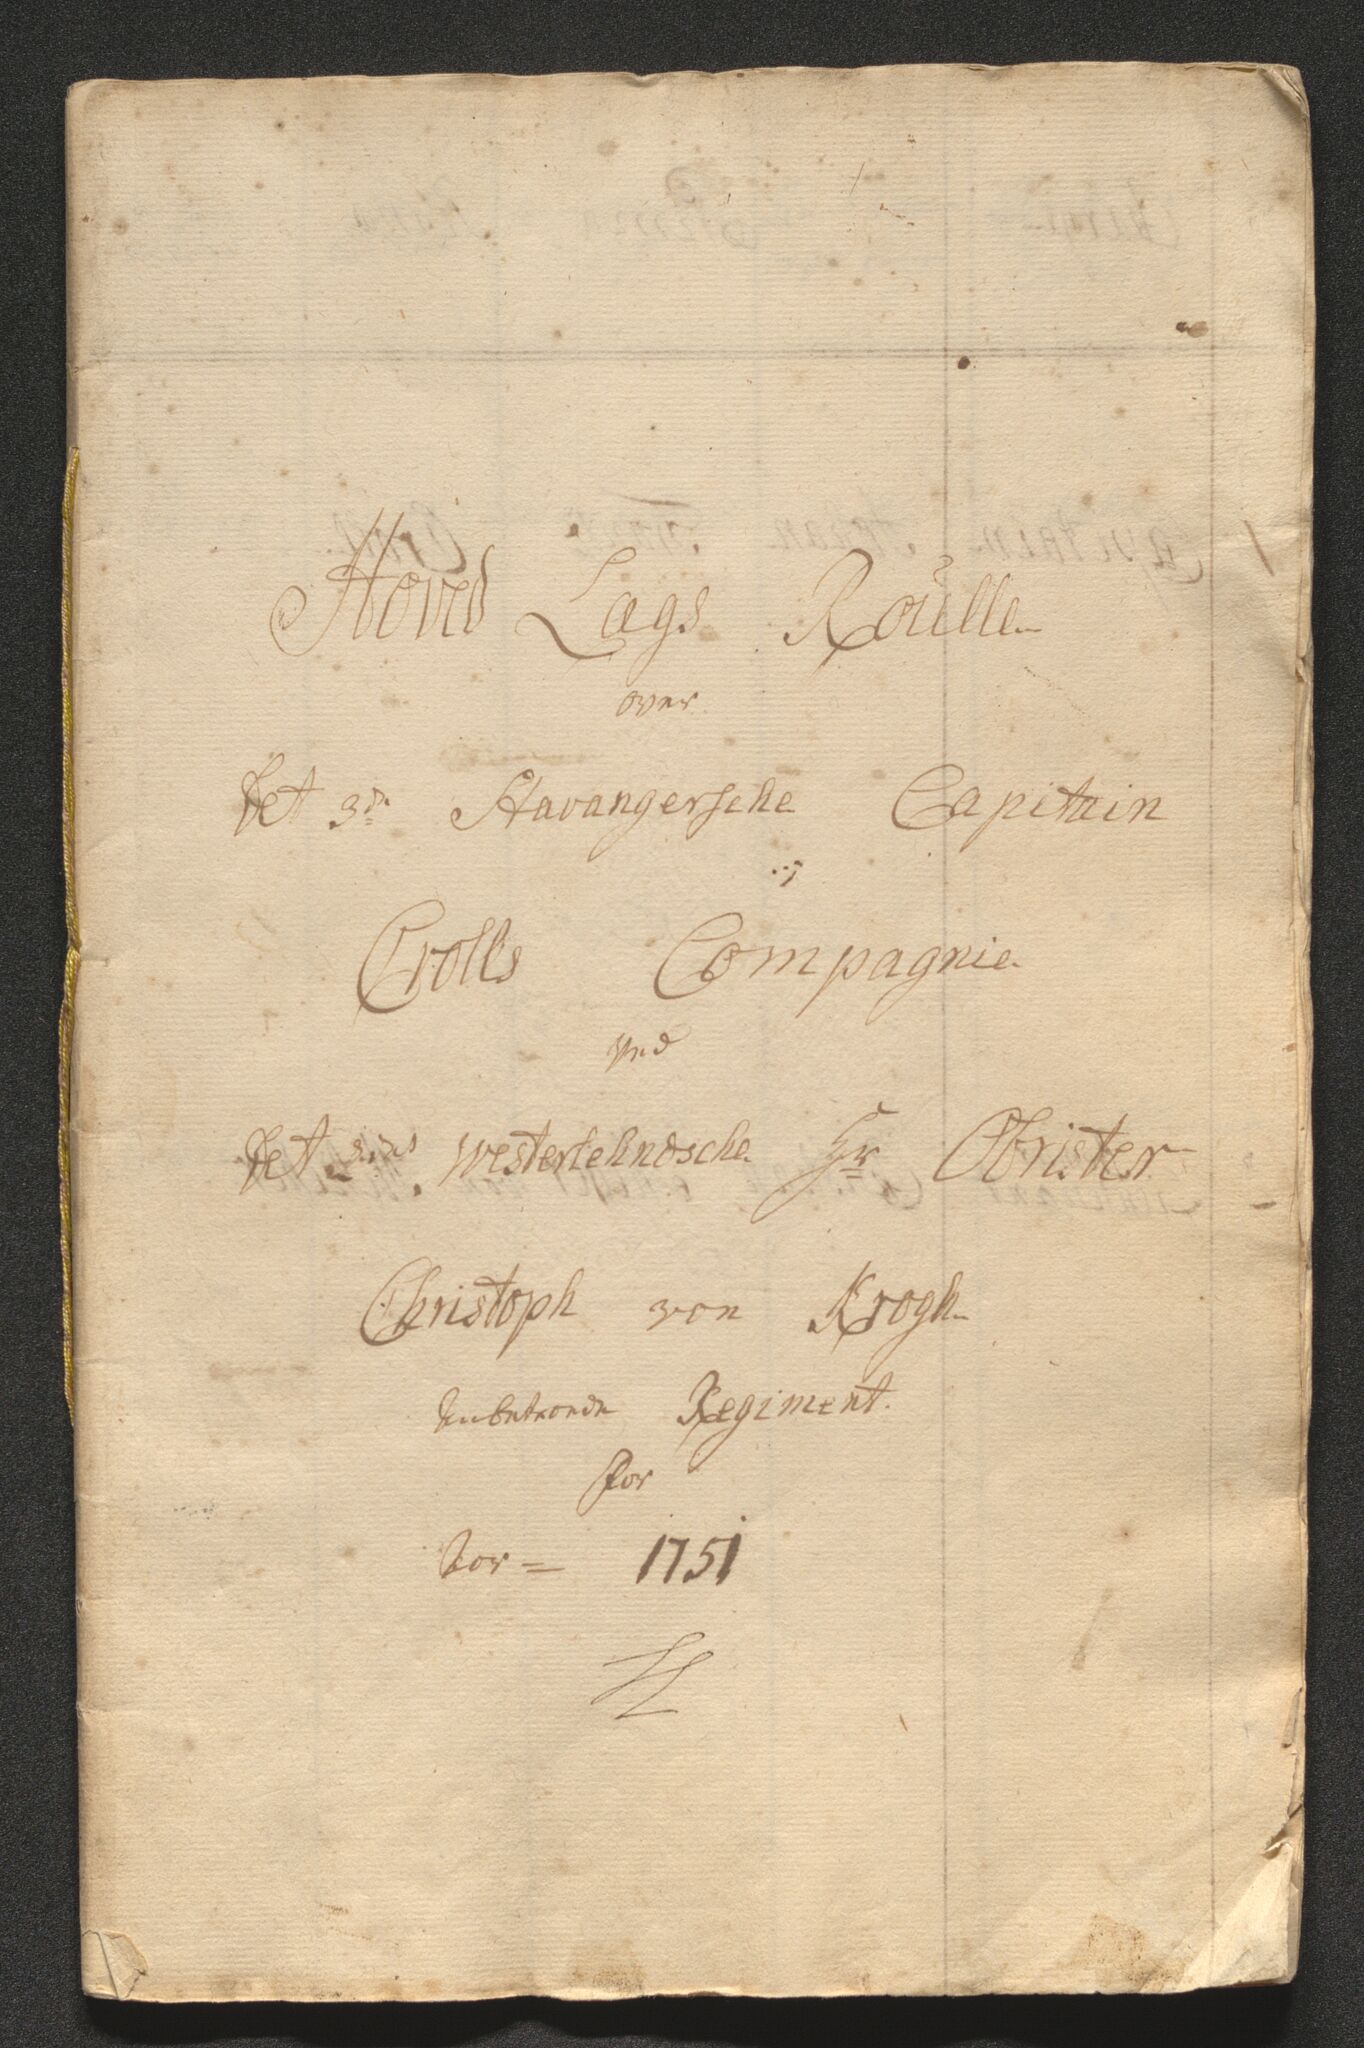 Hoved Lags Roulle
over
Det 3de Stavangersche Capitain
Crolls Compagnie
ved
Det 2det Westerlehndsche Hr Obrister
Christoph von Krogh
Anbetroede Regiment.
for
Aar = 1751